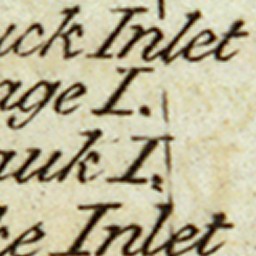 uck Inlet
age I.
auk I.
ke Inlet